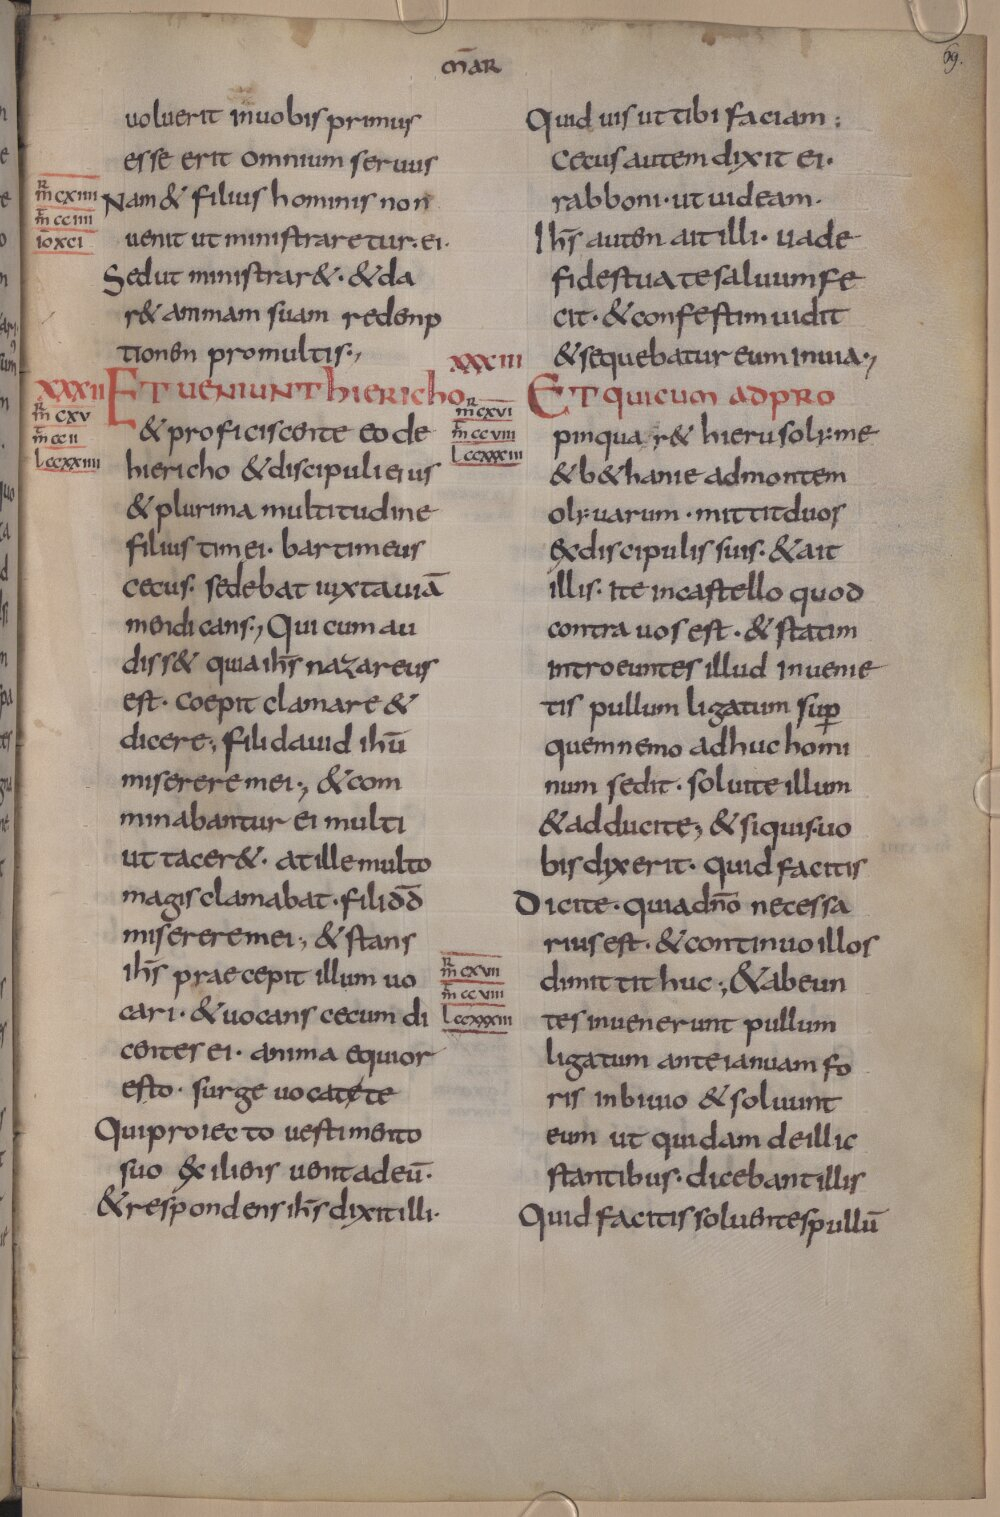 m̄ar
69.
uoluerit inuobis primus
esse erit omnium seruus
R̄ m̄ cxiiii
m̄ cciiii
iō xci
Nam & filius hominis non
uenit ut ministraretur· ei·
Sed ut ministrar&· & da
r& animam suam redemp
tionem promultis·,
XXXII
ET UENIUNT hIERIChO
R̄ m̄ cxv
m̄ ccii
l ccxxiiii
& proficiscente eo de
hiericho & discipuli eius
& plurima multitudine
filius timei· bartimeus
cecus· sedebat iuxtauiā
mendicans·, Qui cum au
diss& quia ihs̄ nazareus
est· coepit clamare &
dicere·, fili dauid ihū
miserere mei·, & com
minabantur ei multi
ut tacer&· at ille multo
magis clamabat· fili dd̄
miserere mei·, & stans
ihs̄ praecepit illum uo
cari· & uocans cecum di
centes ei· anima equior
esto· surge uocat te
Qui proiecto uestimento
suo exiliens uenit adeū·
& respondens ihs̄ dixit illi·
Quid uis ut tibi faciam :
cecus autem dixit ei·
rabboni· ut uideam·
Ihs̄ autem ait illi· uade
fides tua te saluum fe
cit· & confestim uidit
& sequebatur eum inuia·,
XXXIII
ET quicum adpro
R̄ m̄ cxvi
m̄ ccviii
l ccxxxiii
pinquar& hierusolyme
& b&hanie admontem
olyuarum· mittit duos
ex discipulis suis· & ait
illis· ite incastello quod
contra uos est· & statim
introeuntes illud inuenie
tis pullum ligatum sup̄
quem nemo adhuc homi
num sedit· soluite illum
& adducite·, & siquis uo
bis dixerit· quid facitis
Dicite· quia dn̄o necessa
rius est· & continuo illos
dimittit huc·, & abeun
R̄ m̄ cxvii
m̄ ccviii
l ccxxxiii
tes inuenerunt pullum
ligatum ante ianuam fo
ris inbiuio & soluunt
eum ut quidam deillic
stantibus· dicebant illis
Quid facitis soluentes pullū